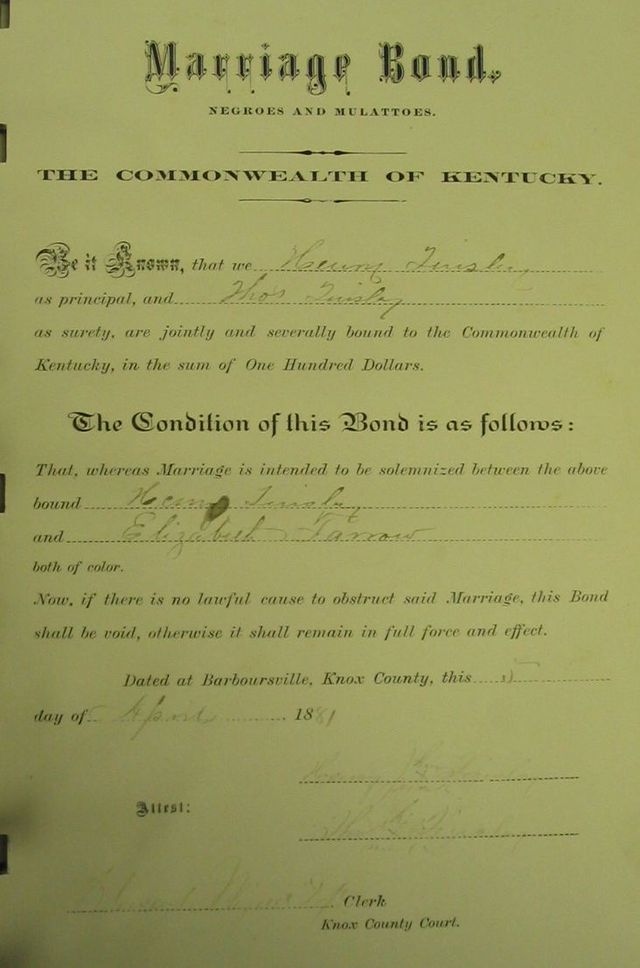 Marriage Bond.
NEGROES AND MULATTOES.
THE COMMONWEALTH OF KENTUCKY.
Be it Known, that we Henry Tinsley
as principal, and Thos Tinsley
as surety, are jointly and severally bound to the Commonwealth of
Kentucky, in the sum of One Hundred Dollars.
The Condition of this Bond is as follows:
That, whereas Marriage is intended to be solemnized between the above
bound Henry Tinsley
and Elizabeth Farrow
both of color.
Now, if there is no lawful cause to obstruct said Marriage, this Bond
shall be void, otherwise it shall remain in full force and effect.
Dated at Barboursville, Knox County, this
day of April 1881
Attest:
Clerk
Knox County Court.